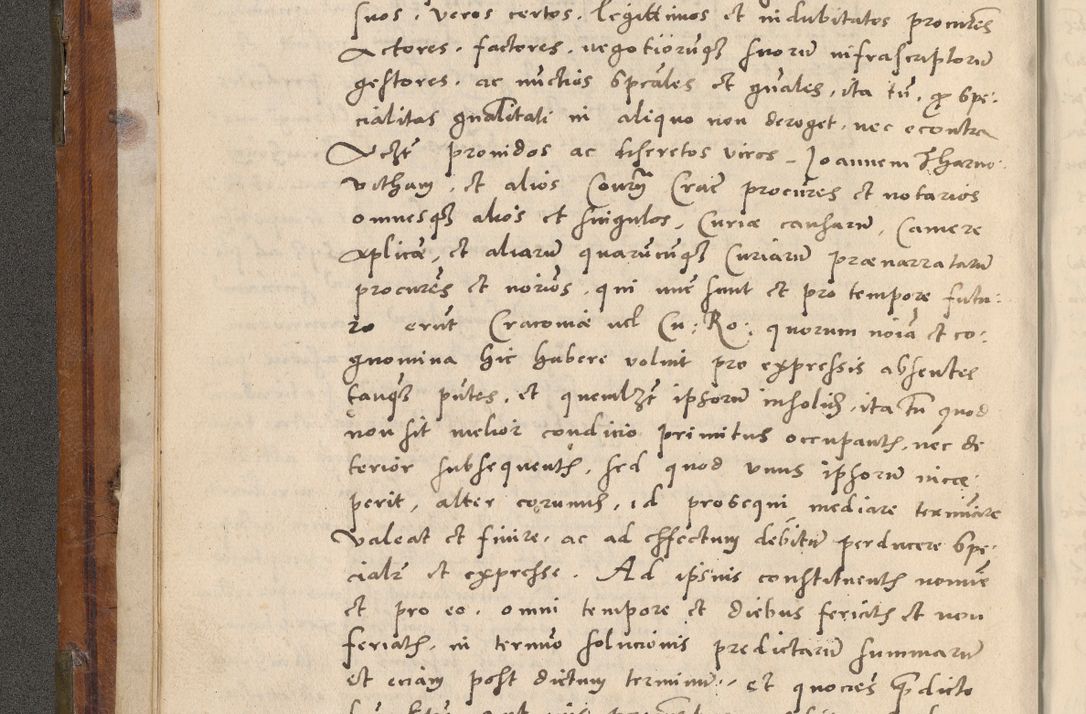 suos, veros certos, legittimos et indubitatos procures
Actores, factores, negotiorumq3 suorū infrascriptorū
gestores, ac nūctios spcāles et gnāles, ita tn̄, q spe:
cialitas gnālitati in aliquo non deroget, nec econtra
providos ac discretos viros Joannem Tharno:
vitham, et alios Crac procures et notarios
omnesq3 alios et singulos, Curiæ causarū, Camere
Aplicæ, et aliarū quarūcūq3 Curiarū prænarratarū
procures et notios, qui nunc sunt et pro tempore futu:
ro erūt Cracoviæ vel Cu: Ro: quorum noīa et co:
gnomina hic habere voluit pro expressis absentes
tanq3 pntes, et ipsorū insolid, ita tn̄ quod
non sit melior condicio primitus occupantis, nec de
terior subsequentis, sed quod unus ipsorū incœ:
perit, alter eorumd, id prosequi mediare terminare
valeat et finire, ac ad effectum debitū perducere spe:
cialr et expresse. Ad ipsius constituentis nomine
et pro eo, omni tempore et diebus feriatis et non
feriatis, in termīo solucionis predictarū summarū
et eciam post dictum terminū, et quocies predicto